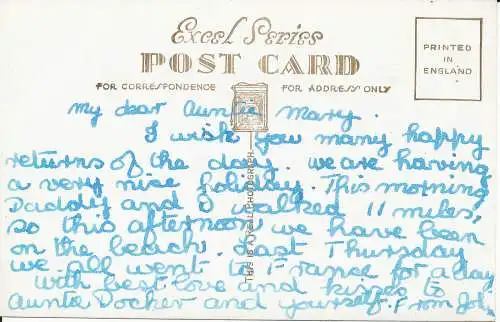 Excel Series
POST CARD
FOR CORRESPONDENCE
FOR ADDRESS ONLY
PRINTED
IN
ENGLAND
THIS IS A REAL PHOTOGRAPH
my dear Auntie Mary.
I wish you many happy
returns of the day. we are having
a very nise holiday. This morning
Daddy and I walked 11 miles,
so this afternoon we have been
on the beach. Last Thursday
we all went to France for a day
with best love and kisses to
Auntie Docher and yourself. From